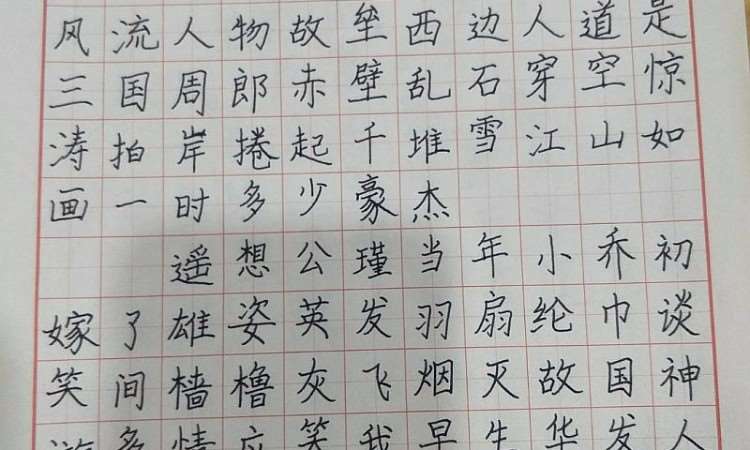 风流人物故垒西边人道是
三国周郎赤壁乱石穿空惊
涛拍岸捲起千堆雪江山如
画一时多少豪杰
遥想公瑾当年小乔初
嫁了雄姿英发羽扇纶巾谈
笑间樯橹灰飞烟灭故国神
游多情应笑我早生华发人